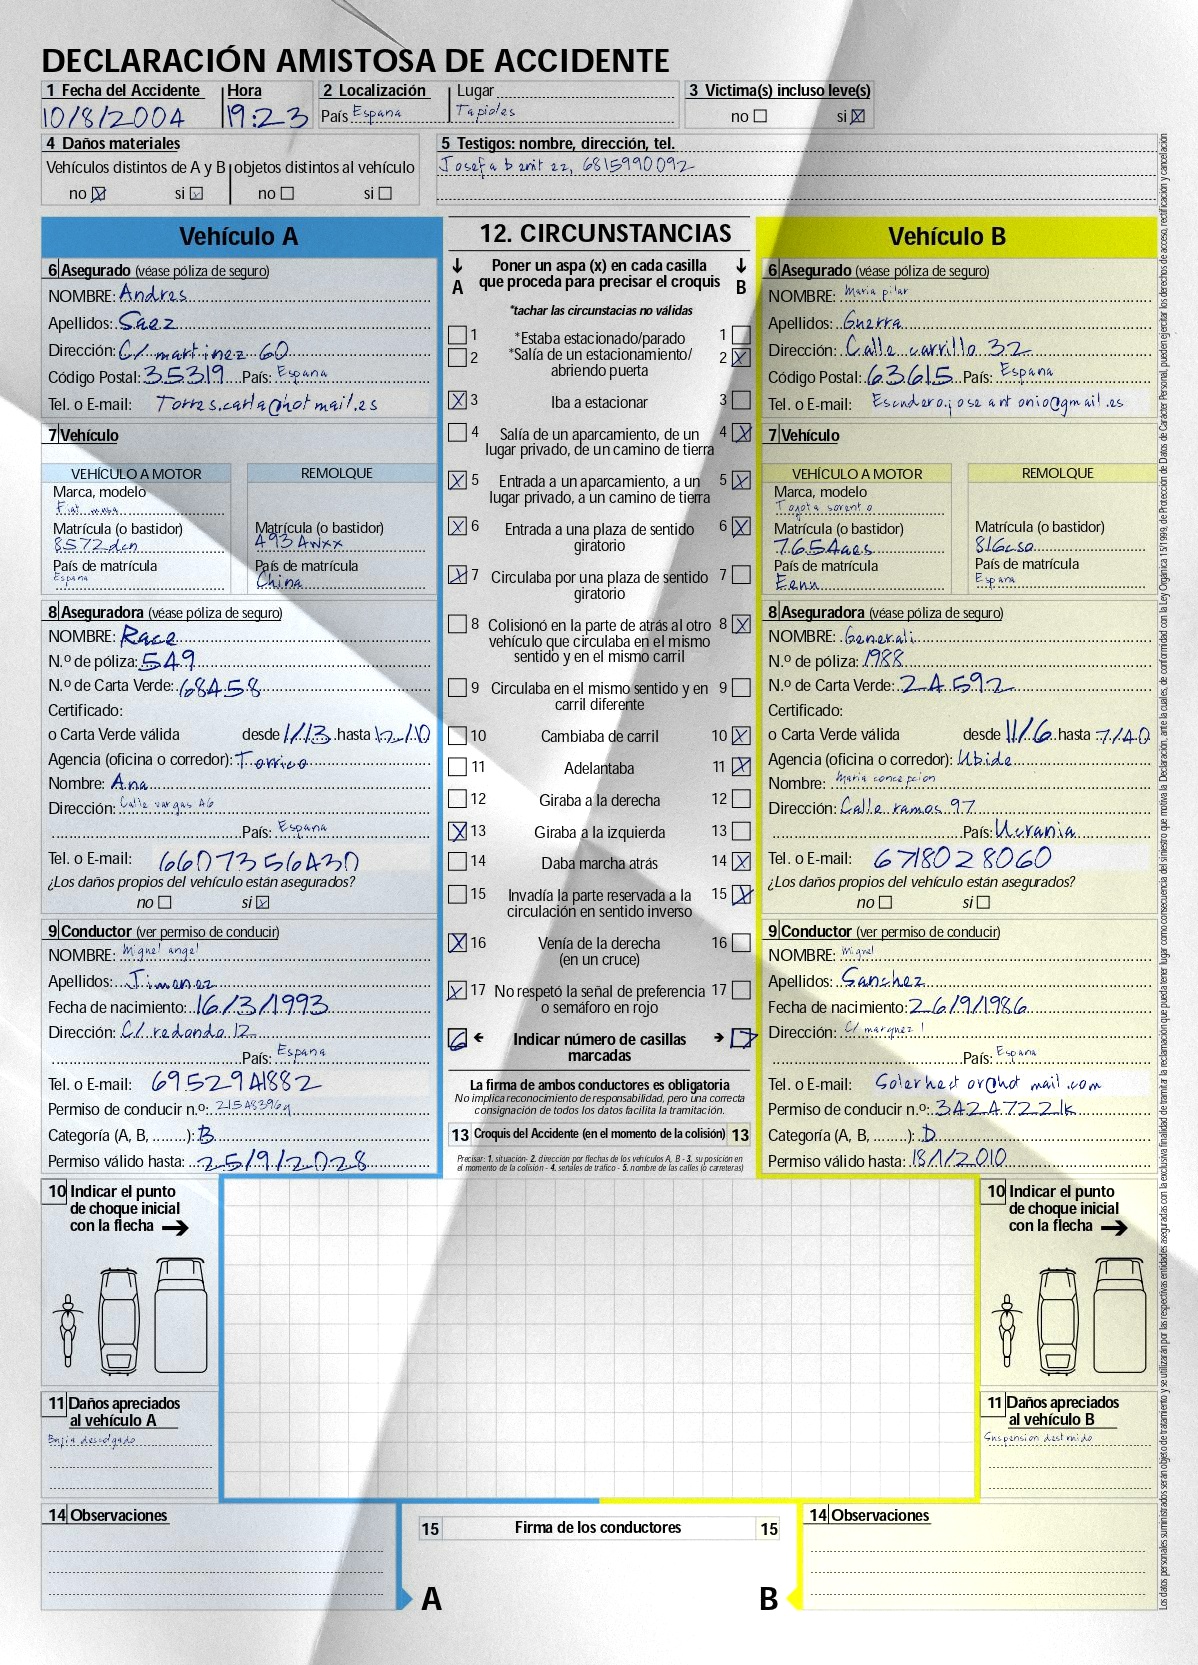 DECLARACIÓN AMISTOSA DE ACCIDENTE
1 Fecha del Accidente Hora 2 Localización Lugar 3 Victima(s) incluso leve(s)
10/8/2004 19:23 País Espana Tapioles no si X
4 Daños materiales 5 Testigos: nombre, dirección, tel.
Vehículos distintos de A y B objetos distintos al vehículo Josefa benitez, 6815990092
no X si X no si
Vehículo A
6 Asegurado (véase póliza de seguro)
NOMBRE: Andres
Apellidos: Saez
Dirección: C/ martinez 60
Código Postal: 35319 País: Espana
Tel. o E-mail: Torres.carla@hotmail.es
7 Vehículo
VEHÍCULO A MOTOR REMOLQUE
Marca, modelo
Fiat musa
Matrícula (o bastidor) Matrícula (o bastidor)
8572dcn 493Awxx
País de matrícula País de matrícula
Espana China
8 Aseguradora (véase póliza de seguro)
NOMBRE: Race
N.º de póliza: 549
N.º de Carta Verde: 68458
Certificado:
o Carta Verde válida desde 1/13 hasta 12/10
Agencia (oficina o corredor): Torrico
Nombre: Ana
Dirección: Calle vargas 46
País: Espana
Tel. o E-mail: 6607356430
¿Los daños propios del vehículo están asegurados?
no si X
9 Conductor (ver permiso de conducir)
NOMBRE: Miguel angel
Apellidos: Jimenez
Fecha de nacimiento: 16/3/1993
Dirección: C/ redondo 12
País: Espana
Tel. o E-mail: 6952941882
Permiso de conducir n.º: 21548396y
Categoría (A, B, ........): B
Permiso válido hasta: 25/9/2028
12. CIRCUNSTANCIAS
A Poner un aspa (x) en cada casilla B
que proceda para precisar el croquis
*tachar las circunstacias no válidas
1 *Estaba estacionado/parado 1
2 *Salía de un estacionamiento/ 2 X
abriendo puerta
X 3 Iba a estacionar 3
4 Salía de un aparcamiento, de un 4 X
lugar privado, de un camino de tierra
X 5 Entrada a un aparcamiento, a un 5 X
lugar privado, a un camino de tierra
X 6 Entrada a una plaza de sentido 6 X
giratorio
X 7 Circulaba por una plaza de sentido 7
giratorio
8 Colisionó en la parte de atrás al otro 8 X
vehículo que circulaba en el mismo
sentido y en el mismo carril
9 Circulaba en el mismo sentido y en 9
carril diferente
10 Cambiaba de carril 10 X
11 Adelantaba 11 X
12 Giraba a la derecha 12
X 13 Giraba a la izquierda 13
14 Daba marcha atrás 14 X
15 Invadía la parte reservada a la 15 X
circulación en sentido inverso
X 16 Venía de la derecha 16
(en un cruce)
X 17 No respetó la señal de preferencia 17
o semáforo en rojo
6 Indicar número de casillas 7
marcadas
La firma de ambos conductores es obligatoria
No implica reconocimiento de responsabilidad, pero una correcta
consignación de todos los datos facilita la tramitación.
13 Croquis del Accidente (en el momento de la colisión) 13
Precisar: 1. situación- 2. dirección por flechas de los vehículos A, B - 3. su posición en
el momento de la colisión - 4. señales de tráfico - 5. nombre de las calles (o carreteras)
Vehículo B
6 Asegurado (véase póliza de seguro)
NOMBRE: Maria pilar
Apellidos: Guerra
Dirección: Calle carrillo 32
Código Postal: 63615 País: Espana
Tel. o E-mail: Escudero.joseantonio@gmail.es
7 Vehículo
VEHÍCULO A MOTOR REMOLQUE
Marca, modelo
Toyota sorento
Matrícula (o bastidor) Matrícula (o bastidor)
7654aes 816cso
País de matrícula País de matrícula
Eeuu Espana
8 Aseguradora (véase póliza de seguro)
NOMBRE: Generali
N.º de póliza: 1988
N.º de Carta Verde: 24592
Certificado:
o Carta Verde válida desde 11/6 hasta 7/40
Agencia (oficina o corredor): Ubide
Nombre: Maria concepcion
Dirección: Calle ramos 97
País: Ucrania
Tel. o E-mail: 6718028060
¿Los daños propios del vehículo están asegurados?
no si
9 Conductor (ver permiso de conducir)
NOMBRE: Miguel
Apellidos: Sanchez
Fecha de nacimiento: 26/9/1986
Dirección: C/ marquez 1
País: Espana
Tel. o E-mail: Solerhector@hotmail.com
Permiso de conducir n.º: 34247221k
Categoría (A, B, ........): D
Permiso válido hasta: 18/1/2010
10 Indicar el punto
de choque inicial
con la flecha
11 Daños apreciados
al vehículo A
Bujia descolgado
10 Indicar el punto
de choque inicial
con la flecha
11 Daños apreciados
al vehículo B
Suspension destruido
14 Observaciones
15 Firma de los conductores 15
A B
14 Observaciones
Los datos personales suministrados serán objeto de tratamiento y se utilizarán por las respectivas entidades aseguradas con la exclusiva finalidad de tramitar la reclamación que pueda tener lugar como consecuencia del siniestro que motiva la Declaración, ante la cuales, de conformidad con la Ley Orgánica 15/1999, de Protección de Datos de Carácter Personal, pueden ejercitar los derechos de acceso, rectificación y cancelación